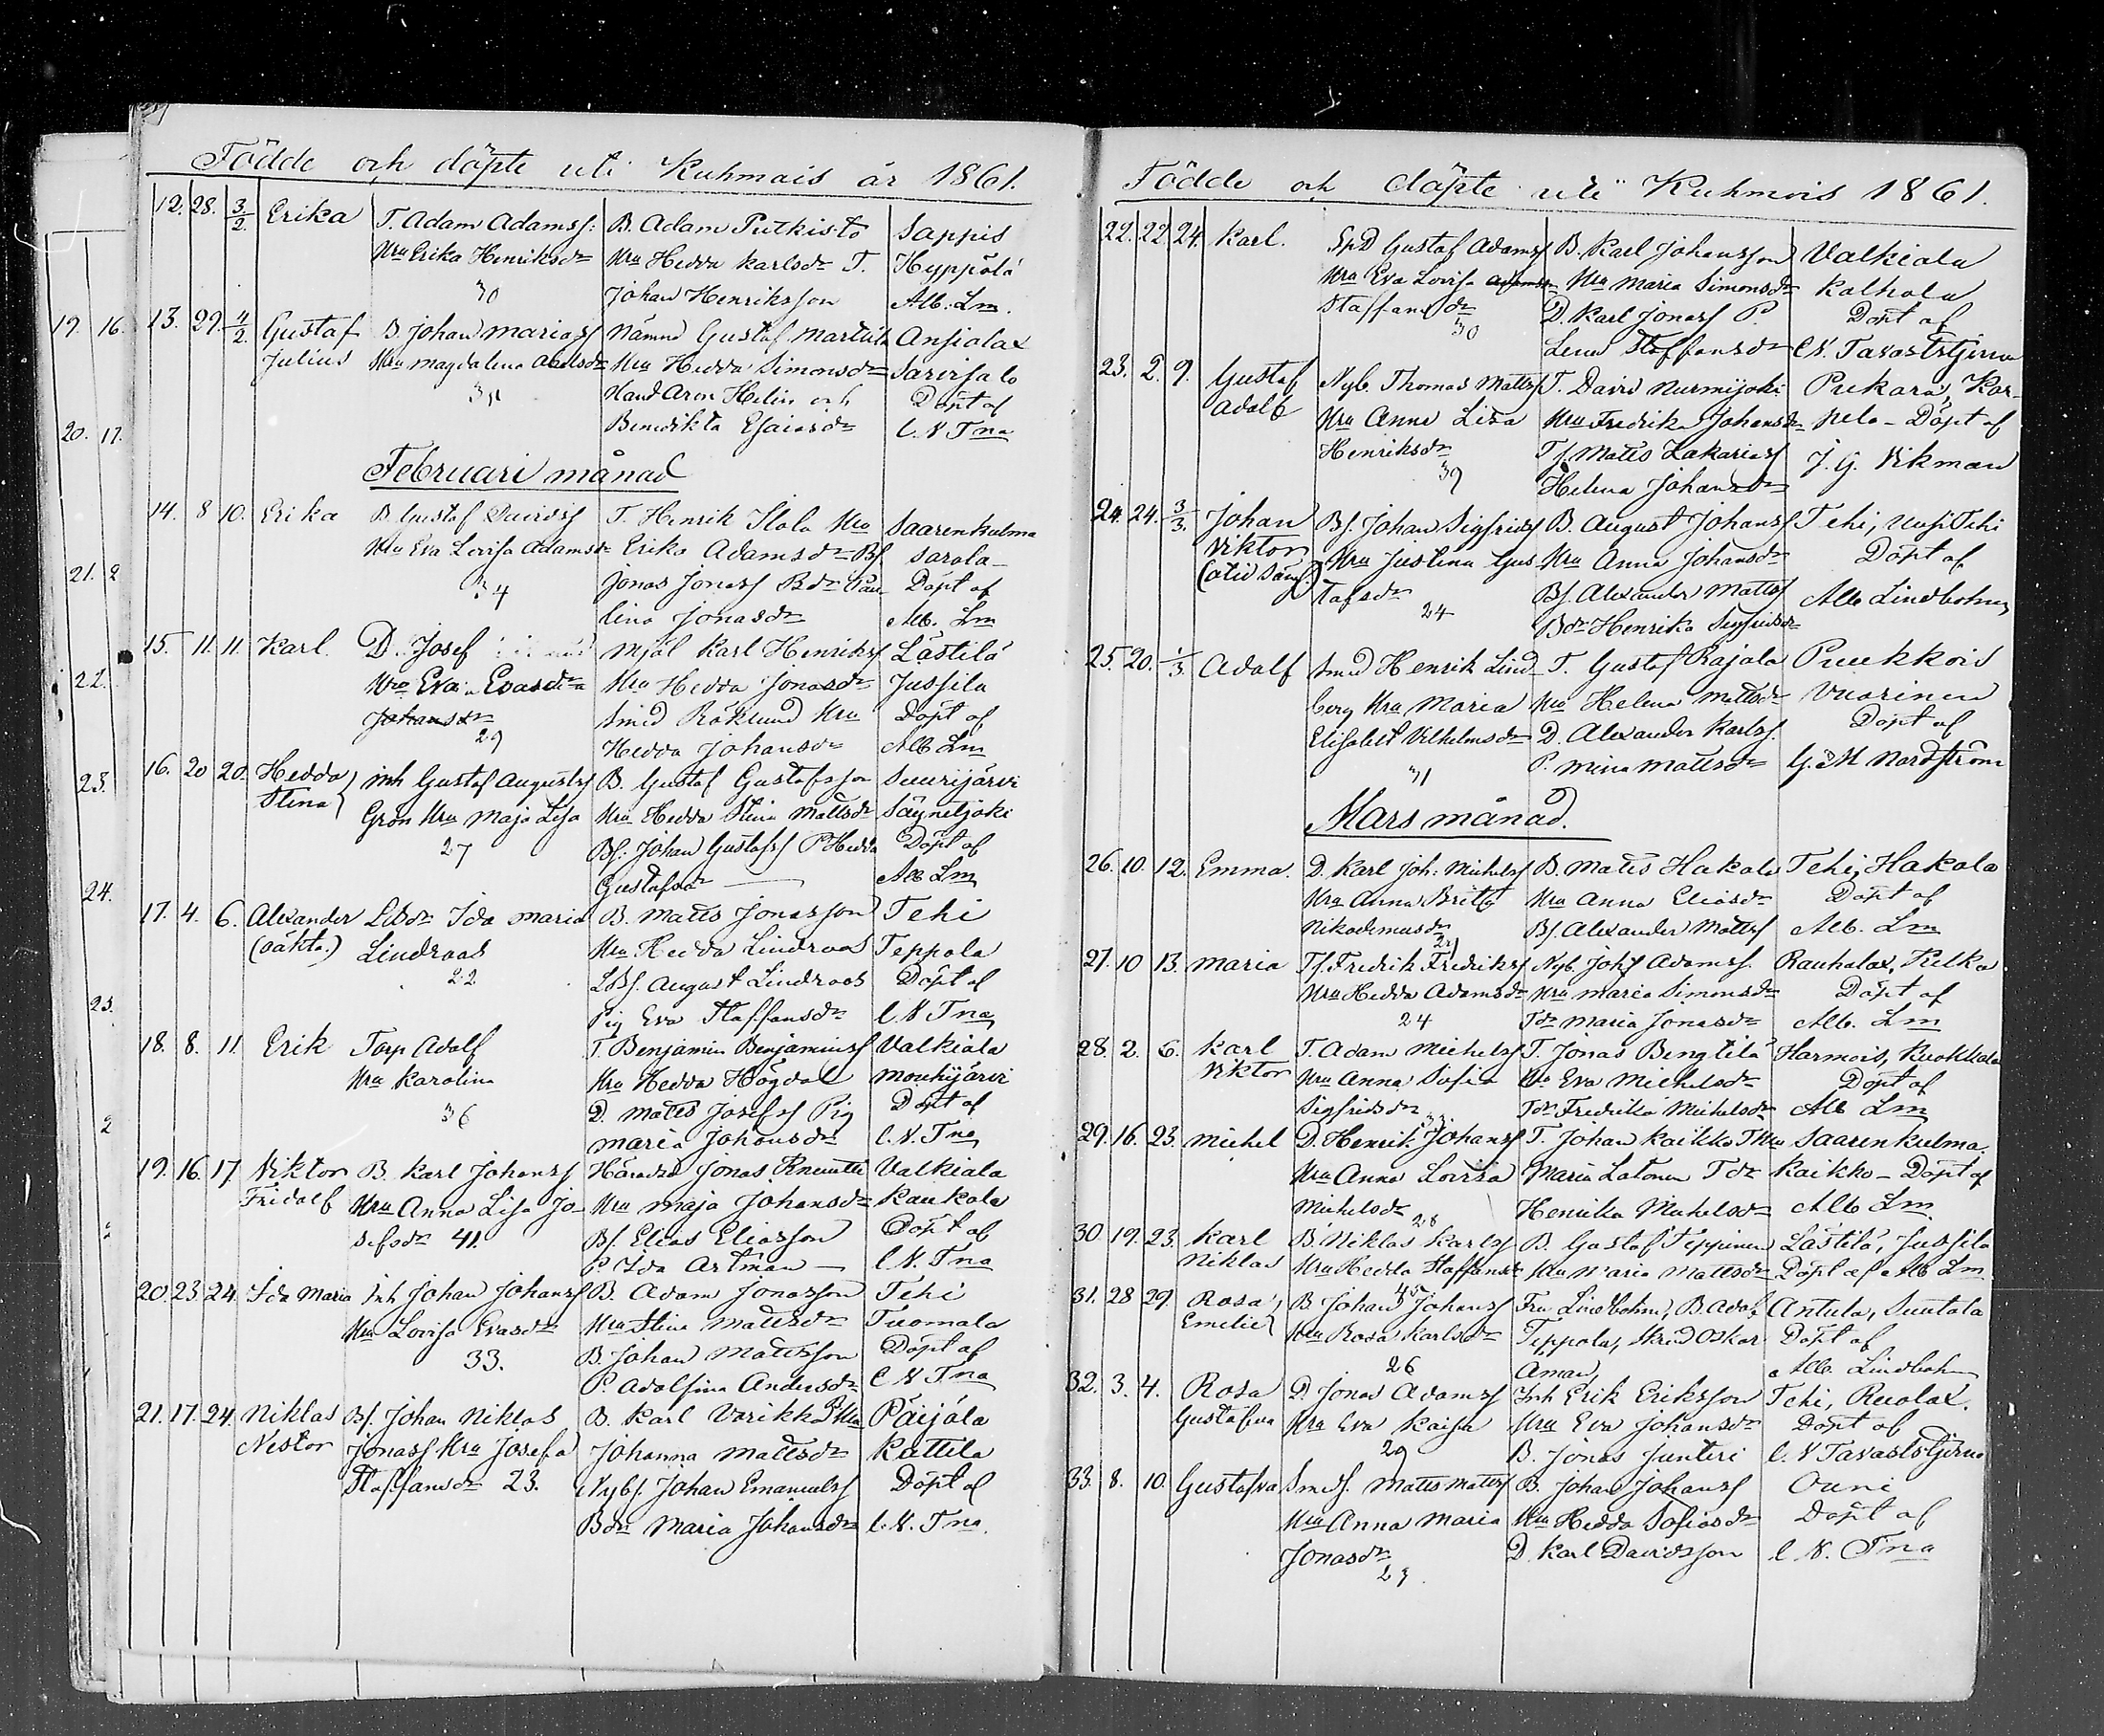 Födde och döpte uti Kuhmois år 1861.
12. 28. 3/2. Erika T. Adam Adamss: B. Adam Putkisto Sappis
Hru Erika Henriksdr Hru Hedda Karlsdr T. Hyppölä
30 Johan Henriksson Alb. Lm.
13. 29. 4/2. Gustaf B. Johan Mariass Nämnd Gustaf Marttila Ansiolax
Julius Hru Magdalena Abelsdr Hru Hedda Simonsdr Sarvisalo
Hand Aron Helin och Döpt af
Benedikta Esaiasdr C. N Tna
Februari månad
14. 8 10. Erika B. Gustaf Davidss T. Henrik Ilola Hru Saarenkulma
Hru Eva Lovisa Adamsdr Erika Adamsdr Bs. Sarala
34 Jonas Jonass Bdr Pau- Döpt af
lina Jonasdr Alb. Lm
15. 11. 11. Karl. D. Josef Mjöl Karl Henrikss Lästilä
Hru Eva Evasdra Hru Hedda Jonasdr Jussila
Johansdr Smed Röklund Hru Döpt af
29 Hedda Johansdr Alb Lm
16. 20 20. Hedda Inh Gustaf Augustss B. Gustaf Gustafsson Suurijärvi
Stina Grön Hru Maja Lisa Hru Hedda Stina Mattsdr Säynetjoki
27 Bs: Johan Gustafss P Hedda Döpt af
Gustafsdr Alb Lm
17. 4. 6. Alexander LBdr Ida Maria B. Matts Jonasson Tehi
(oäkta.) Lindroos Hru Hedda Lindroos Teppola
22 LBs. August Lindroos Döpt af
Pig Eva Staffansdr C. N Tna
18. 8. 11. Erik Torp Adolf T. Benjamin Benjaminss Valkiala
Hru Karolina Hru Hedda Högdal Mouhijärvi
36 D. Matts Josefss Pig Döpt af
Maria Johansdr C. N. Tna
19. 16. 17. Viktor B. Karl Johanss Jonas Valkiala
Fridolf Hru Anna Lisa Jo- Hru Maja Johansdr Kaukola
sefsdr 41. Bs. Elias Eliasson Döpt af
P. Ida Artman C. N. Tna
20. 23. 24. Ida Maria Inh Johan Johanss B. Adam Jonasson Tehi
Hru Lovisa Evasdr Hru Stina Mattsdr Tuomala
33. B. Johan Mattsson Döpt af
P. Adolfina Andersdr C N Tna
21. 17. 24. Niklas Bs. Johan Niklas B. Karl Varikko Hru Päijälä
Nestor Jonass Hru Josefa Johanna Mattsdr Kattila
Staffansdr 23. Nybs. Johan Emanuelss Döpt af
Bdr Maria Johansdr C. N. Tna.
19. 16.
20. 17.
21. 2
22.
23.
24.
25.
Födde och döpte uti Kuhmois 1861.
22. 22. 24. Karl. SpD Gustaf Adamss B. Karl Johansson Valkiala
Hru Eva Lovisa Adamsdr Hru Maria Simonsdr Kalhola
Staffansdr D. Karl Jonass P. Döpt af
30 Lena Staffansdr C. N. Tavaststjerna
23. 2. 9. Gustaf Nyb. Thomas Mattss T. David Nurmijoki Pukara, Kar-
Adolf Hru Anna Lisa Hru Fredrika Johansdr pela - Döpt af
Henriksdr Ts. Matts Zakariass J. G. Vikman
39 Helena Johansdr
24. 24. 3/3. Johan Bs. Johan Sigfridss B. August Johanss Tehi, Uusi Tehi
Viktor Hru Justina Gus- Hru Anna Johansdr Döpt af
tafsdr Bs. Alexander Mattss Alb Lindbohm
24 Bdr Henrika Sigfridsdr
25. 20. 1/3 Adolf Smed Henrik Lind- T. Gustaf Rajala Puukkois
berg Hru Maria Hru Helena Mattsdr Vuorinen
Elisabet Vilhelmsdr D. Alexander Karlss. Döpt af
31 P. Mina Mattsdr G. M Nordström
Mars månad.
26. 10. 12. Emma. D. Karl Joh: Michelss B. Matts Hakala Tehi, Hakala
Hru Anna Britta Hru Anna Eliasdr Döpt af
Nikodemusdr Bs. Alexander Mattss Alb. Lm
27. 10 13. Maria Ts. Fredrik Fredrikss Nyb. Johs Adamss. Rauhalax, Kelka
Hru Hedda Adamsdr Hru Maria Simonsdr Döpt af
24 Tdr Maria Jonasdr Alb. Lm
28. 2. 6. Karl T. Adam Michelss T. Jonas Bengtilä Harmois, Kuokkala
Viktor Hru Anna Sofia Hru Eva Michelsdr Döpt af
Sigfridsdr Tdr Fredrika Michelsdr Alb Lm
29. 16. 23. Michel D. Henrik Johanss T. Johan Kaikko T Hru Saarenkulma.
Hru Anna Lovisa Maria Latonen Tdr Kaikko - Döpt af
Michelsdr 28 Henrika Michelsdr Alb Lm
30 19. 23. Karl B. Niklas Karlss B. Gustaf Teppinen Lästilä, Jussila
Niklas Hru Hedda Staffansdr Hru Maria Mattsdr Döpt af Alb Lm
45
31. 28 29. Rosa, B Johan Johanss Fru Lindbohm, B. Adolf Antula, Suutala
Emelie Hru Rosa Karlsdr Teppola, Oskar Döpt af
26 Aman, Alb. Lindbohm
32. 3. 4. Rosa D. Jonas Adamss Inh Erik Eriksson Tehi, Ruolax.
Gustafva Hru Eva Kaisa Hru Eva Johansdr Döpt af
29 B. Jonas Junteri C. N Tavaststjerna
33. 8. 10. Gustafva Smds. Matts Mattss B. Johan Johanss Ouni
Hru Anna Maria Hru Hedda Sofiasdr Döpt af
Jonasdr D. Karl Davidsson C. N. Tna